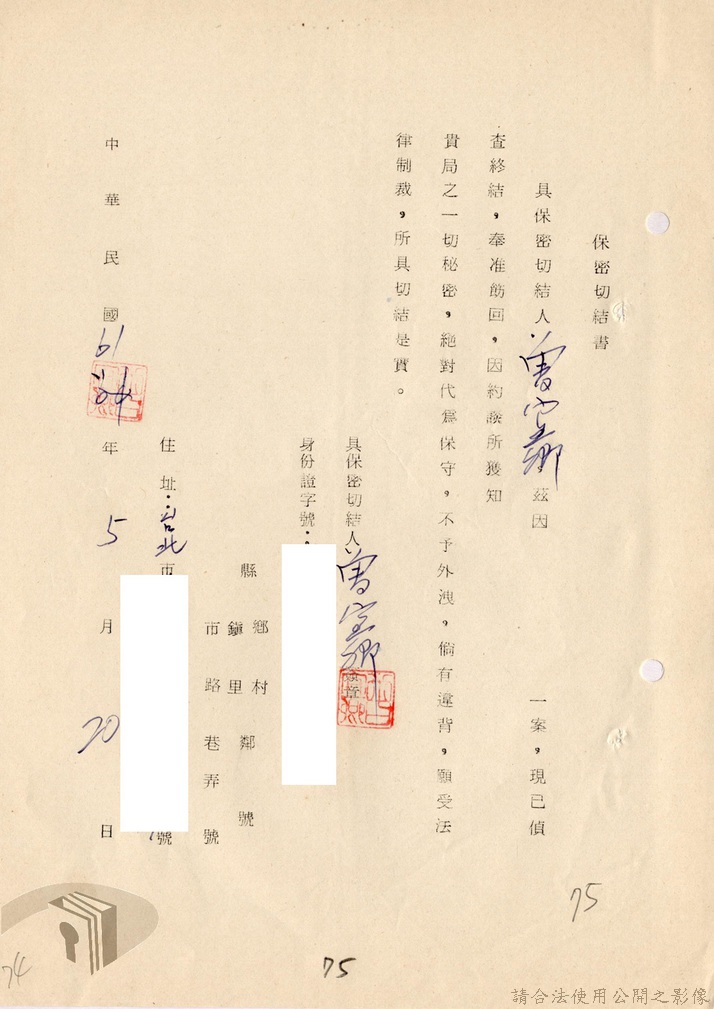 保密切結書
具保密切結人曾宝卿茲因　一案，現已偵
查終結，奉准飭回，因約談所獲知
貴局之一切秘密，絕對代為保守，不予外洩，倘有違背，願受法
律制裁，所具切結是實。
具保密切結人曾宝卿
身份證字號：
縣　鄉鎮　村里　鄰　號
市　路　巷　弄　號
住址：台北市　號
中華民國61年5月20日
75
75
74
請合法使用公開之影像